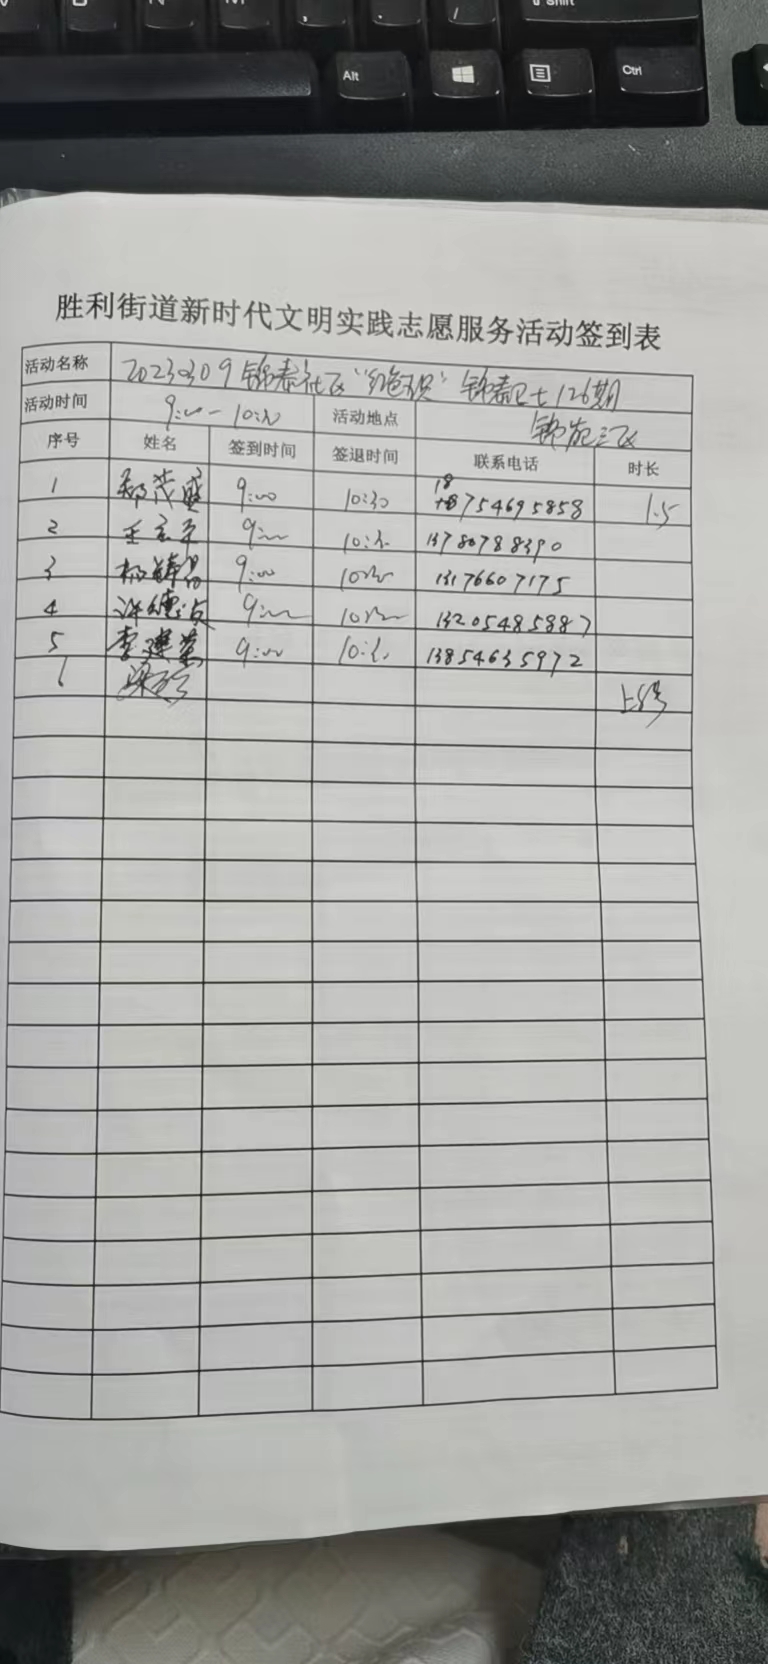 Shift
Alt
Ctrl
胜利街道新时代文明实践志愿服务活动签到表
活动名称 20230309锦泰社区“红色 ” 锦泰卫士126期
活动时间 9:00-10:30 活动地点 锦苑三区
序号 姓名 签到时间 签退时间 联系电话 时长
1 郑茂盛 9:00 10:30 18754695858 1.5
2 9:00 10:30 13780788390
3 9:00 10:30 13176607175
4 许德 9:00 10:30 13205485887
5 李建 9:00 10:30 13854635972
梁